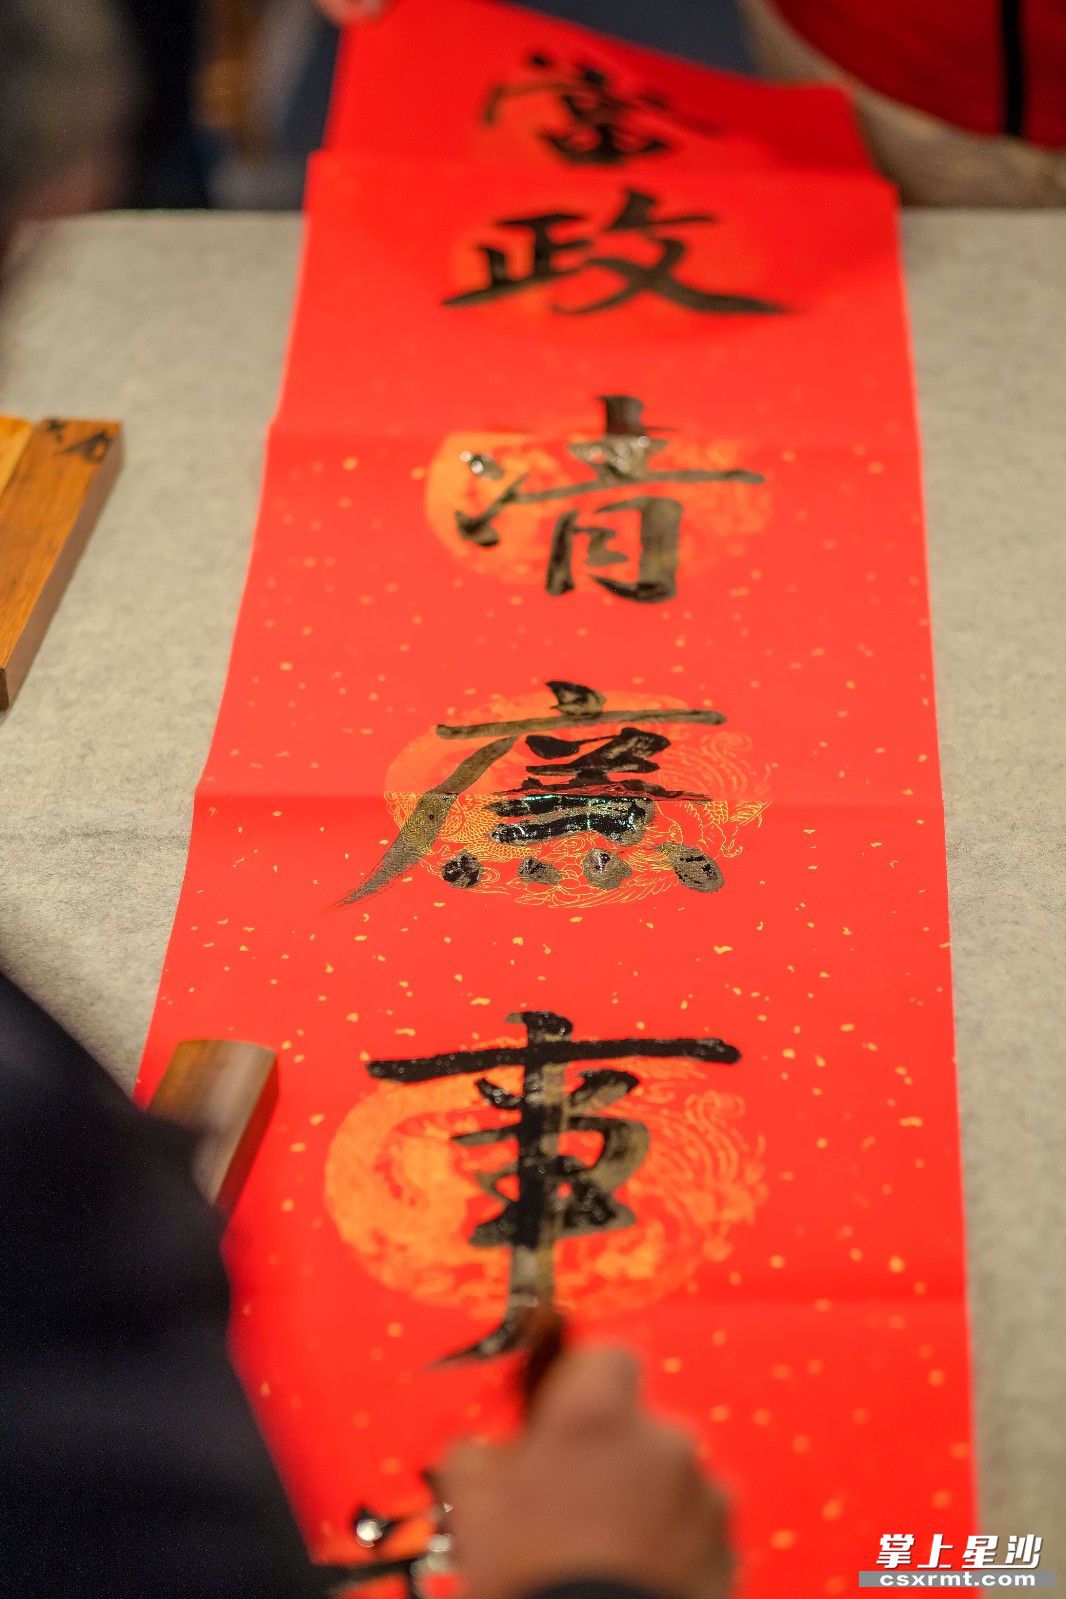 當政清廉事
掌上星沙
csxrmt.com